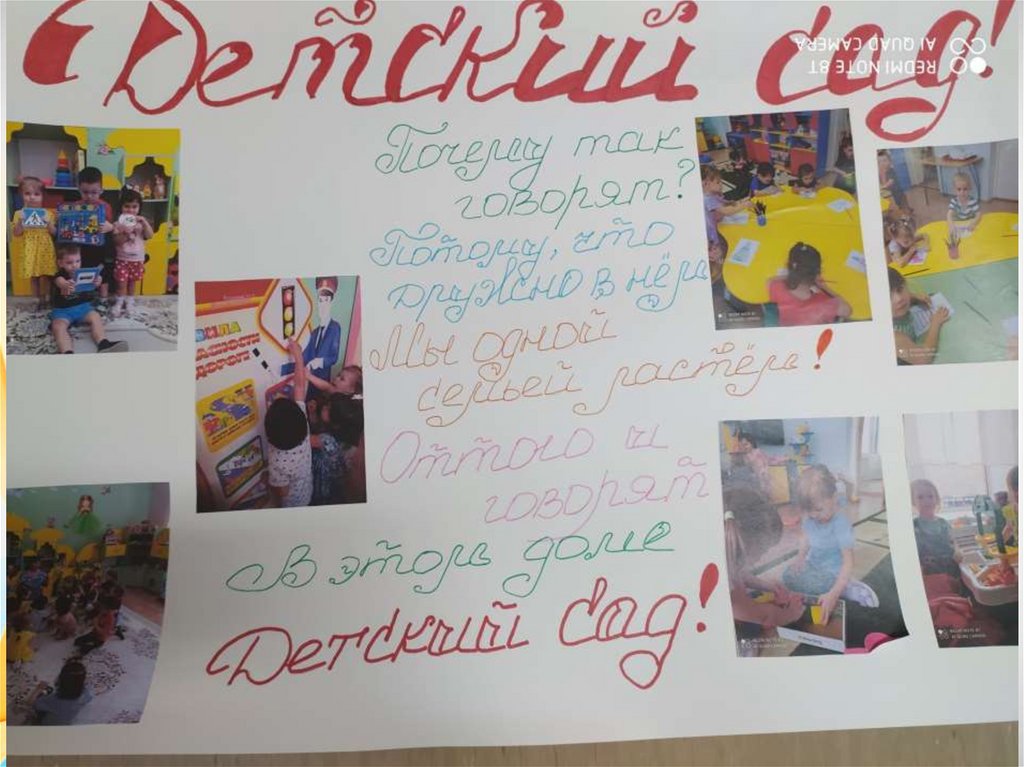 Детский сад!
REDMI NOTE 8T
AI QUAD CAMERA
Почему так
говорят?
Потому, что
дружно в нём
Мы одной
семьёй растём!
Оттого и
говорят
В этом доме
Детский сад!